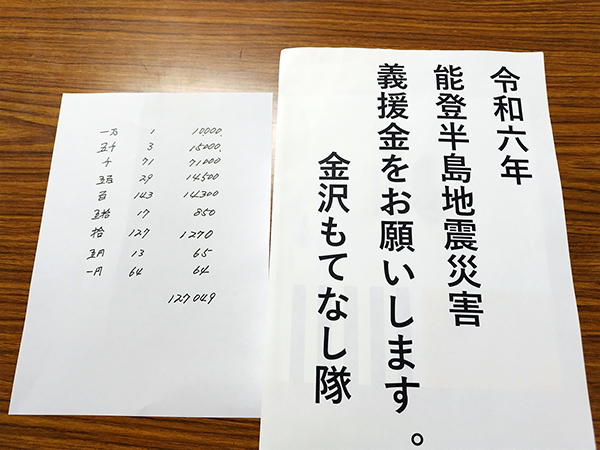 一万 1 10000.
五千 3 15000.
千 71 71000
五百 29 14,500
百 143 14,300
五拾 17 850
拾 127 1270
五円 13 65
一円 64 64
127049
令和六年
能登半島地震災害
義援金をお願いします。
金沢もてなし隊